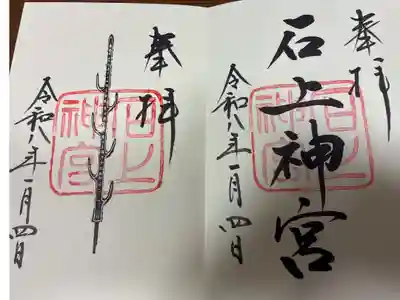 奉拝
石上神宮
令和八年一月四日
奉拝
石上神宮
石上神宮
令和八年一月四日